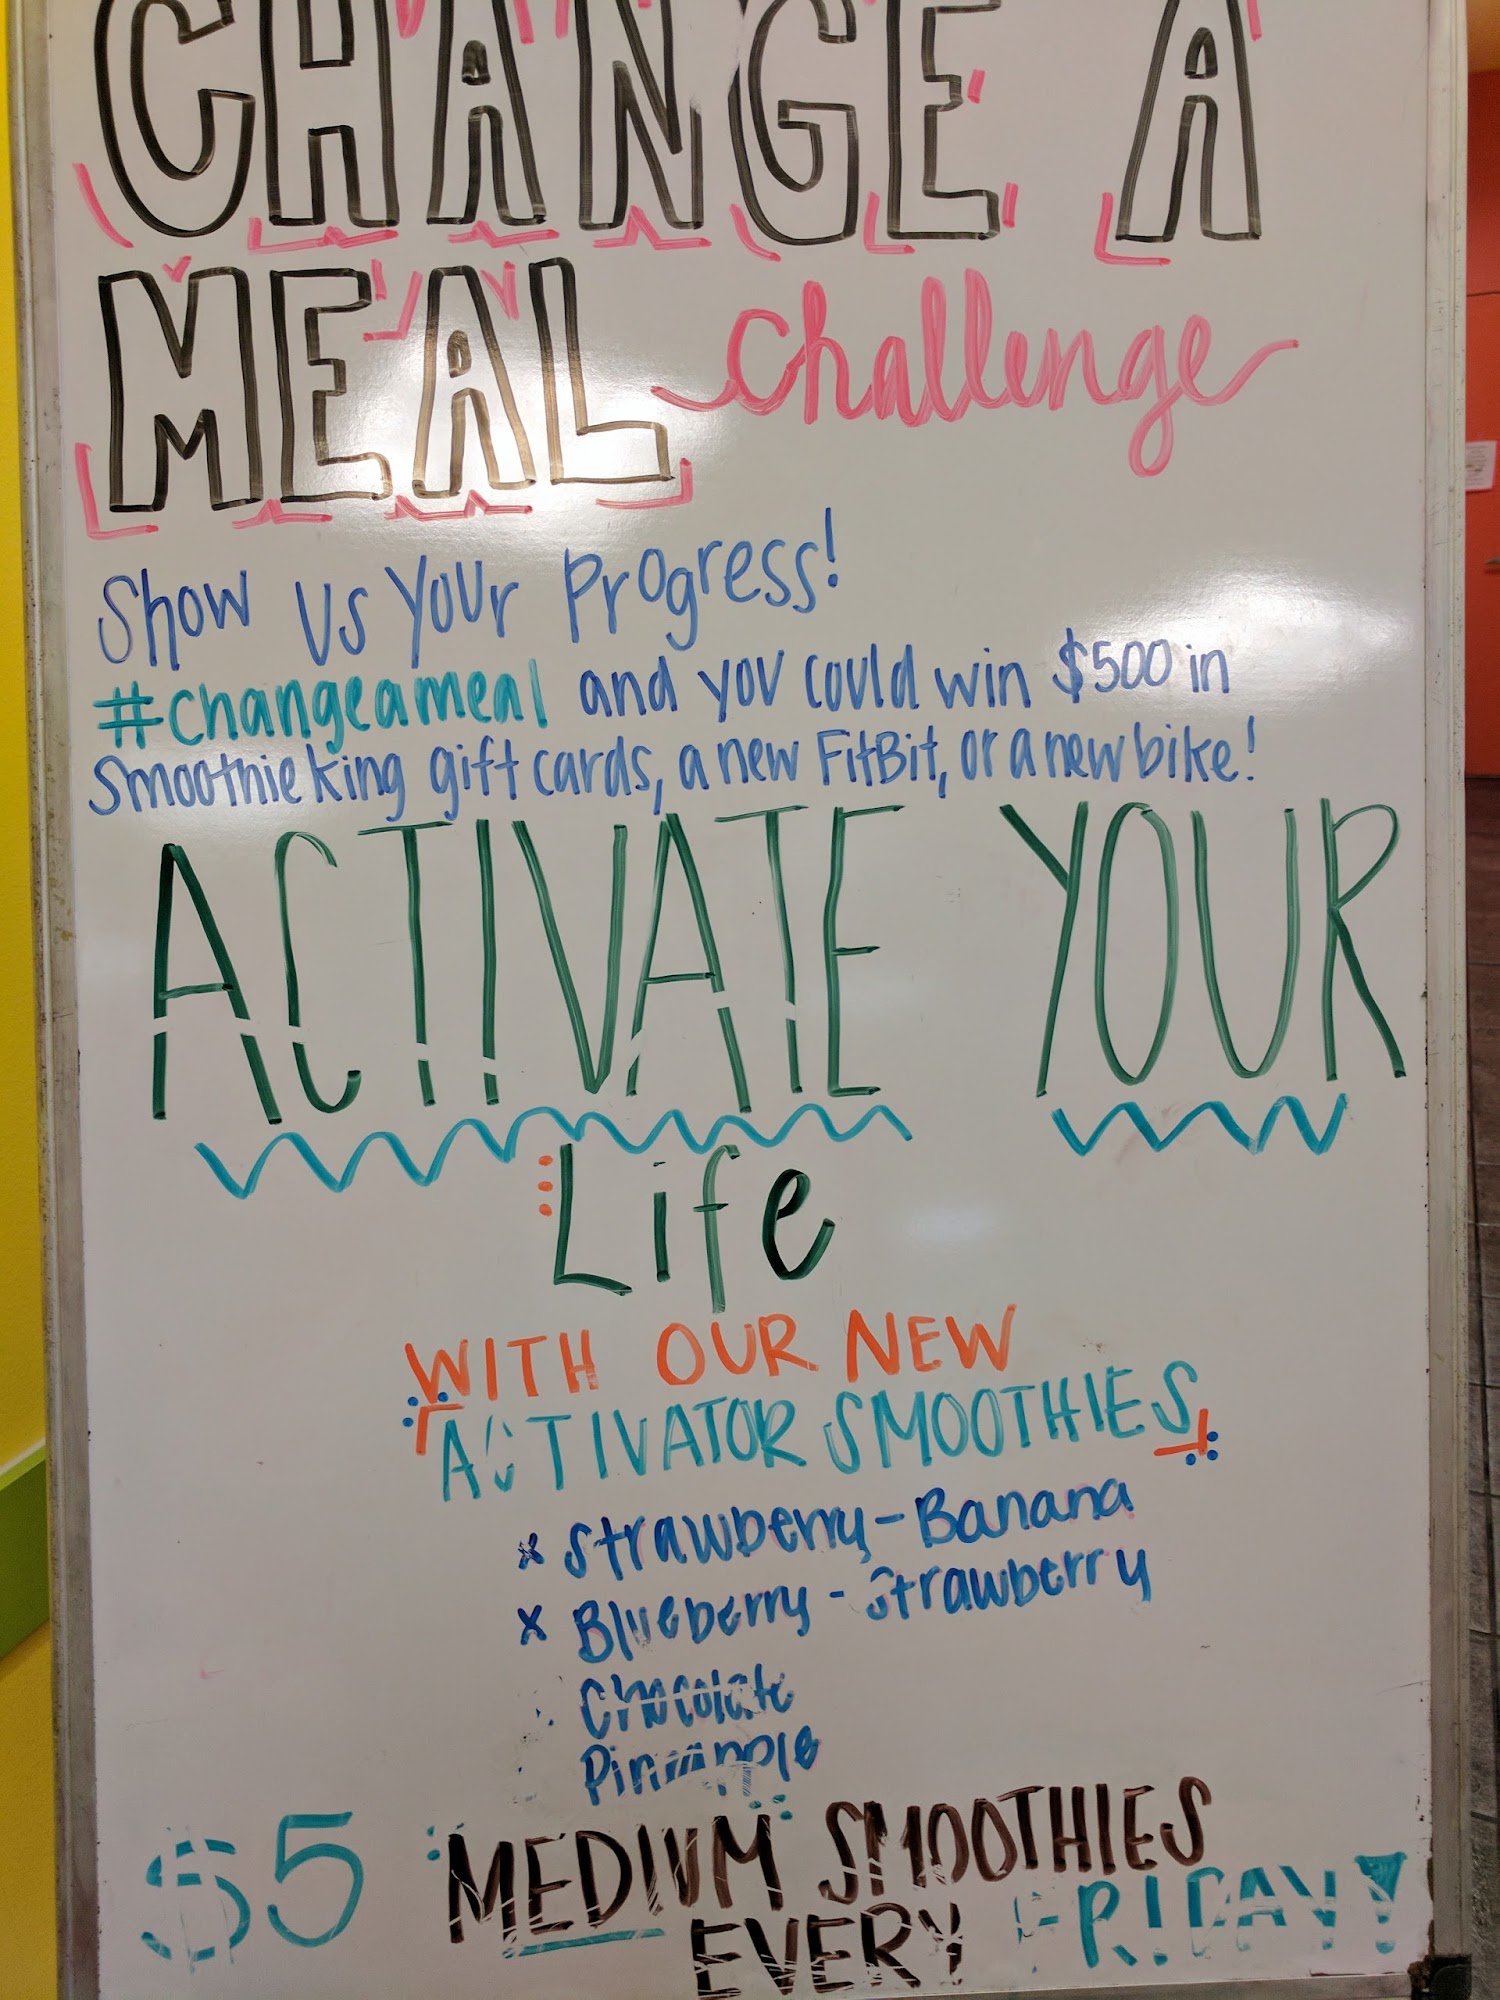 CHANGE A
MEAL challenge
Show us your progress!
#changeameal and you could win $500 in
Smoothie king gift cards, a new FitBit, or a new bike!
ACTIVATE YOUR
Life
WITH OUR NEW
ACTIVATOR SMOOTHIES
x Strawberry-Banana
x Blueberry-Strawberry
Chocolate
Pineapple
$5 MEDIUM SMOOTHIES
EVERY FRIDAY!